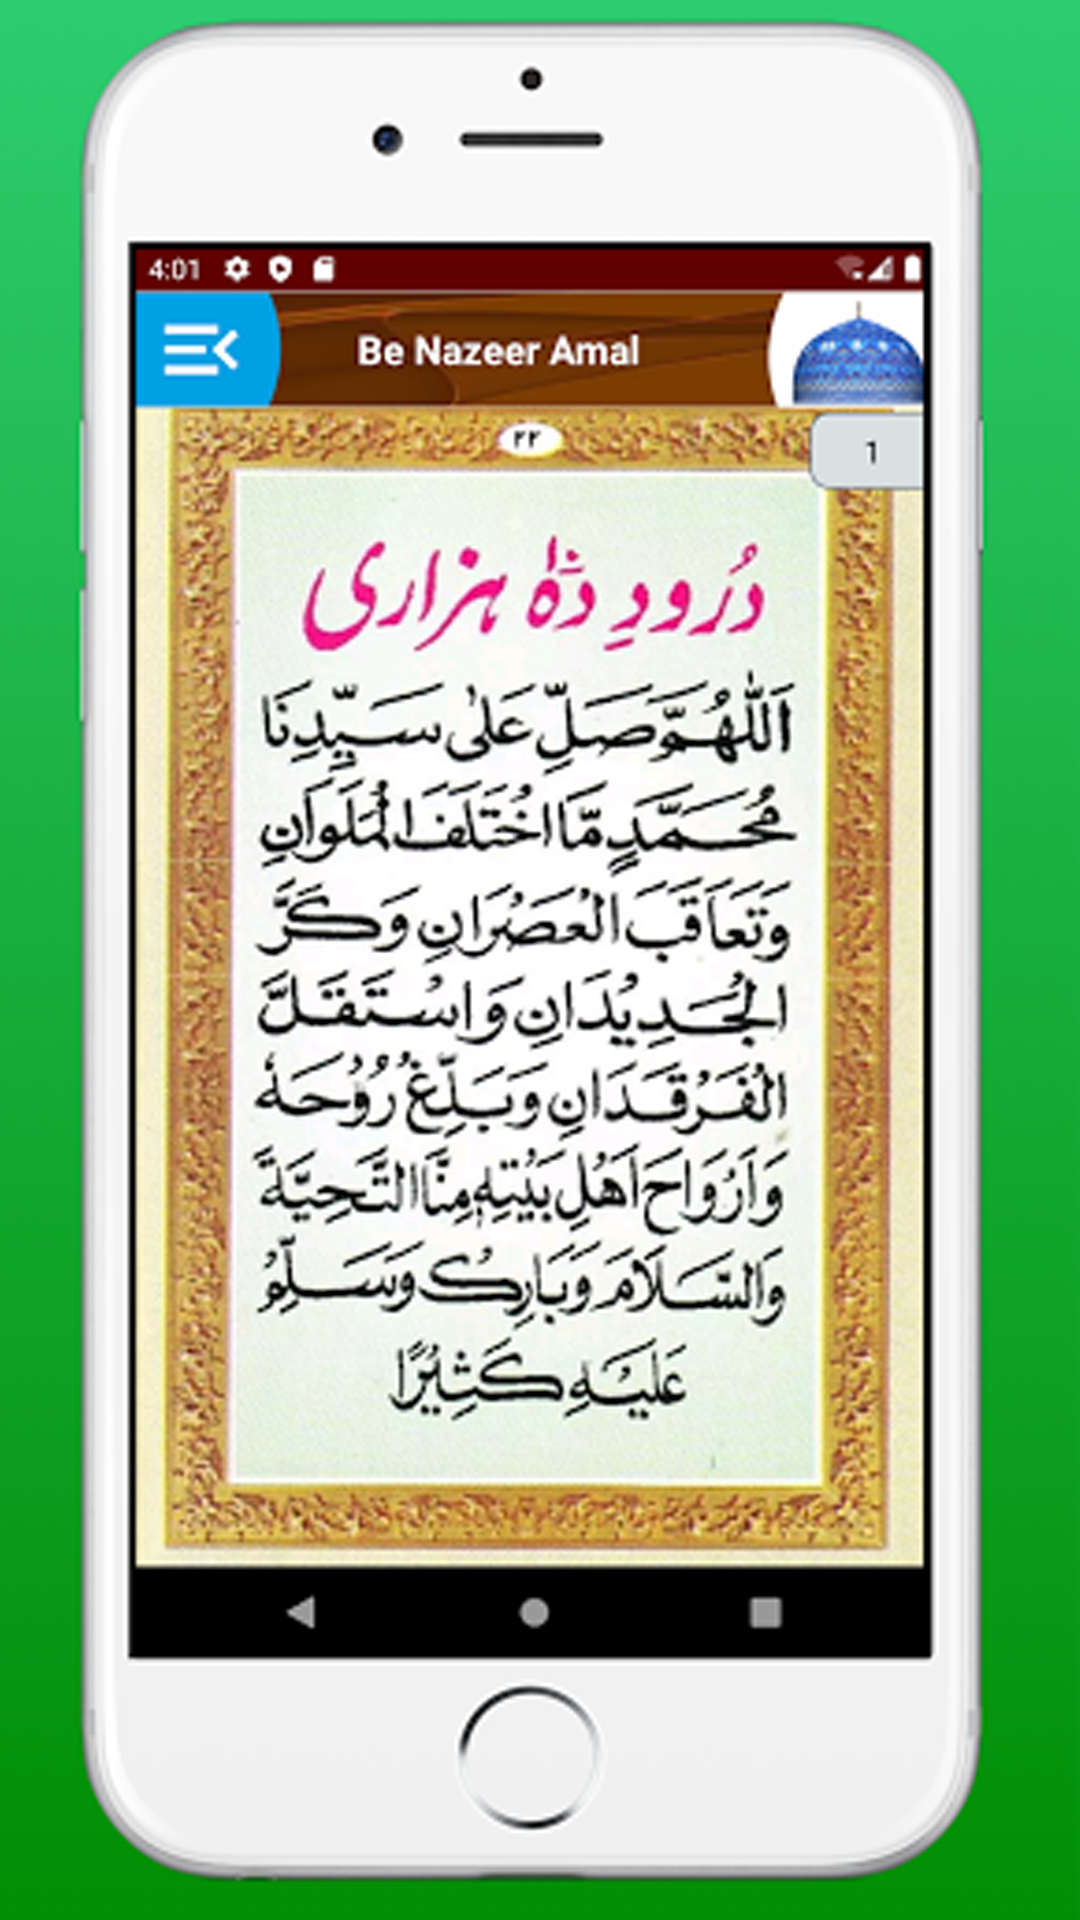 4:01
Be Nazeer Amal
۲۲
1
دُرودِ دَہ ہزاری
اَللّٰهُمَّ صَلِّ عَلٰى سَيِّدِنَا
مُحَمَّدٍ مَّا اخْتَلَفَ الْمَلَوَانِ
وَتَعَاقَبَ الْعَصْرَانِ وَكَرَّ
الْجَدِيْدَانِ وَاسْتَقَلَّ
الْفَرْقَدَانِ وَبَلِّغْ رُوْحَهٗ
وَاَرْوَاحَ اَهْلِ بَيْتِهٖ مِنَّا التَّحِيَّةَ
وَالسَّلَامَ وَبَارِكْ وَسَلِّمْ
عَلَيْهِ كَثِيْرًا